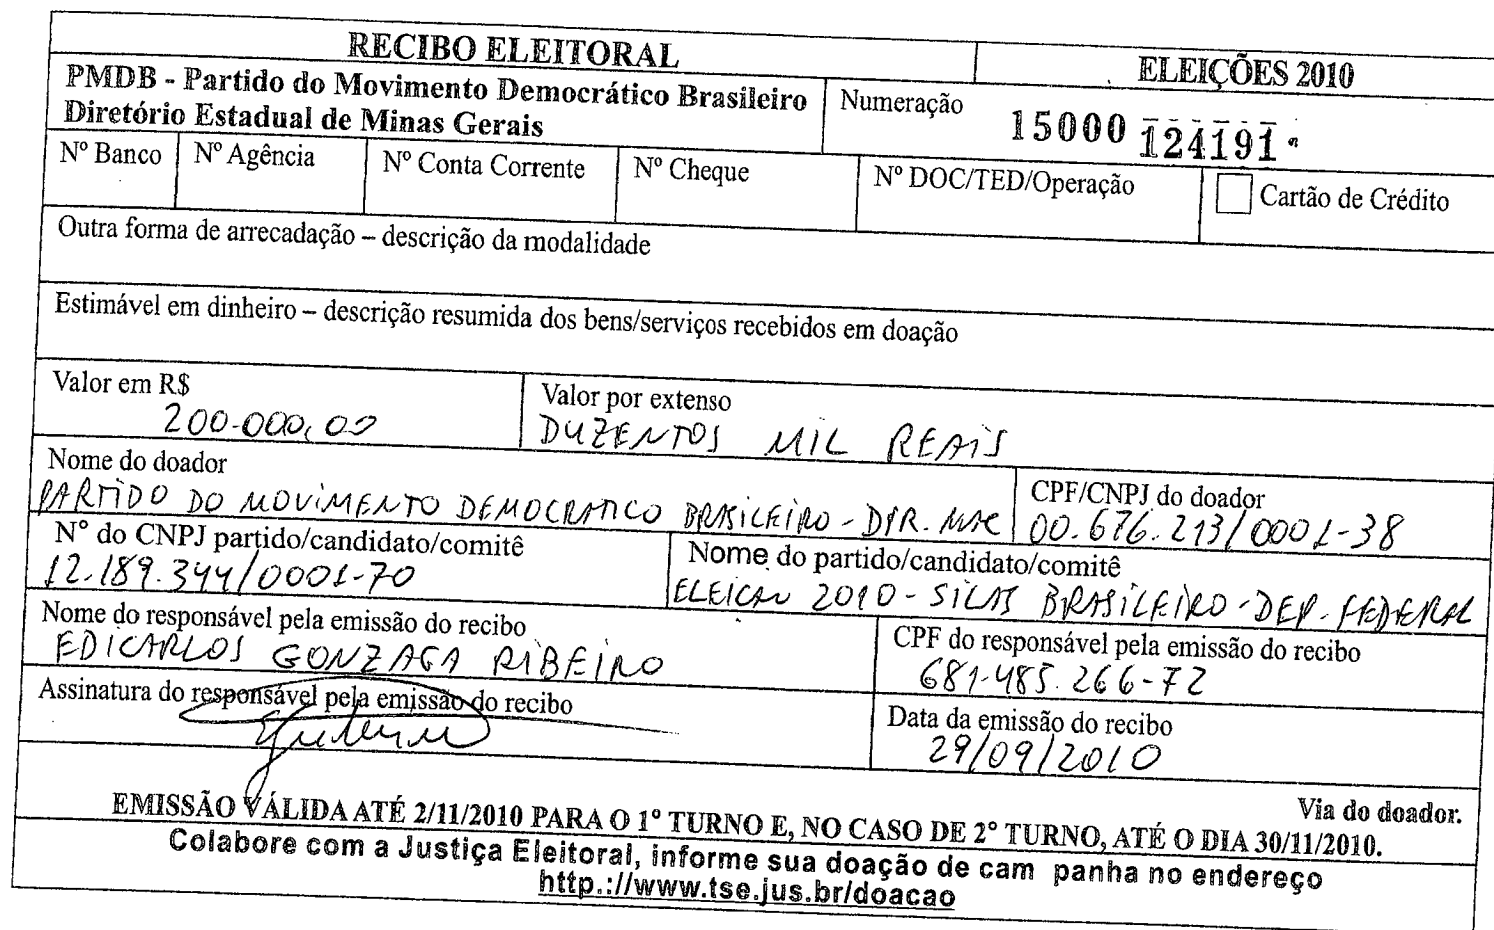 RECIBO ELEITORAL
ELEIÇÕES 2010
PMDB - Partido do Movimento Democrático Brasileiro
Diretório Estadual de Minas Gerais
Numeração
15000 124191
Nº Banco
Nº Agência
Nº Conta Corrente
Nº Cheque
Nº DOC/TED/Operação
Cartão de Crédito
Outra forma de arrecadação – descrição da modalidade
Estimável em dinheiro – descrição resumida dos bens/serviços recebidos em doação
Valor em R$
200.000,00
Valor por extenso
DUZENTOS MIL REAIS
Nome do doador
PARTIDO DO MOVIMENTO DEMOCRATICO BRASILEIRO - DIR. NAC
CPF/CNPJ do doador
00.676.213/0001-38
N° do CNPJ partido/candidato/comitê
12.189.344/0001-70
Nome do partido/candidato/comitê
ELEICAO 2010 - SILAS BRASILEIRO - DEP. FEDERAL
Nome do responsável pela emissão do recibo
EDICARLOS GONZAGA RIBEIRO
CPF do responsável pela emissão do recibo
681.485.266-72
Assinatura do responsável pela emissão do recibo
Data da emissão do recibo
29/09/2010
Via do doador.
EMISSÃO VÁLIDA ATÉ 2/11/2010 PARA O 1° TURNO E, NO CASO DE 2° TURNO, ATÉ O DIA 30/11/2010.
Colabore com a Justiça Eleitoral, informe sua doação de cam panha no endereço
http.://www.tse.jus.br/doacao